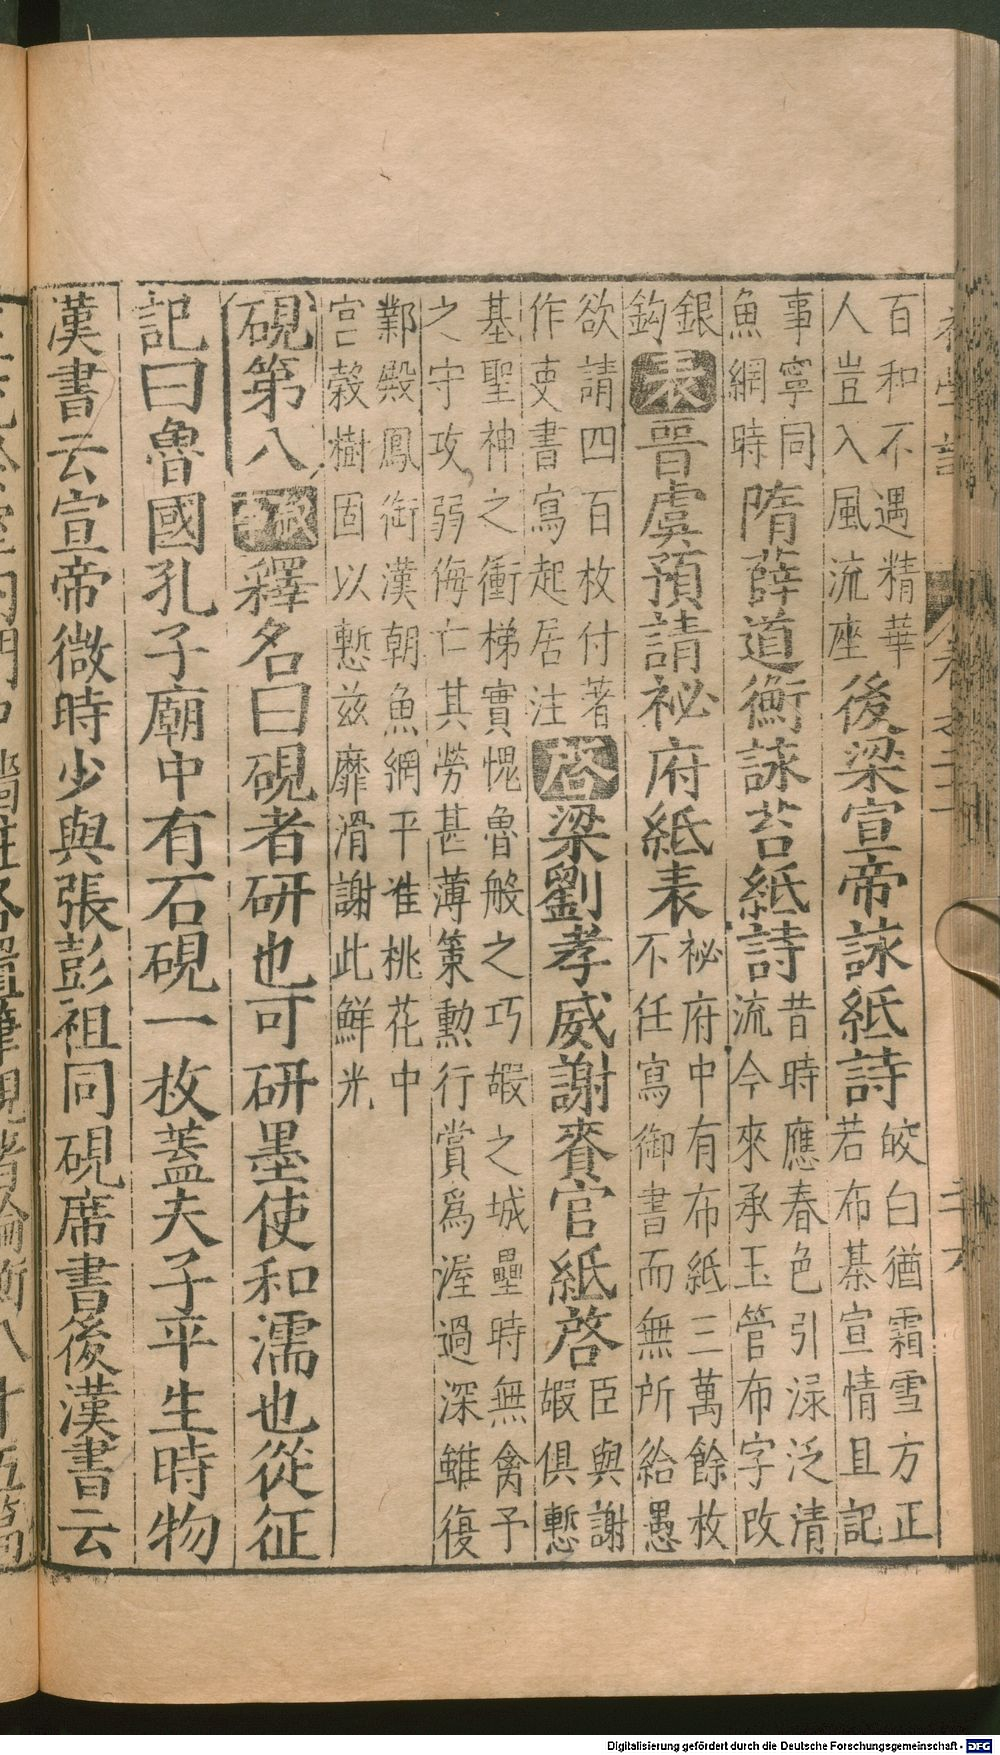 百和不遇精華
人豈入風流座
後梁宣帝詠紙詩
皎白猶霜雪方正
若布棊宣情且記
事寧同
魚網時
隋薛道衡詠苔紙詩
昔時應春色引渌泛清
流今來承玉管布字改
銀
鈎
表
晉虞預請祕府紙表
祕府中有布紙三萬餘枚
不任寫御書而無所給愚
欲請四百枚付著
作吏書寫起居注
啓
梁劉孝威謝賚官紙啓
臣與謝
嘏俱慙
基聖神之衝梯實愧魯般之巧嘏之城壘時無禽予
之守攻弱侮亡其勞甚薄策勳行賞爲渥過深雖復
鄴殿鳳銜漢朝魚網平准桃花中
宮穀樹固以慙兹靡滑謝此鮮光
硯第八
釋名曰硯者研也可研墨使和濡也從征
記曰魯國孔子廟中有石硯一枚蓋夫子平生時物
漢書云宣帝微時少與張彭祖同硯席書後漢書云
Digitalisierung gefördert durch die Deutsche Forschungsgemeinschaft - DFG